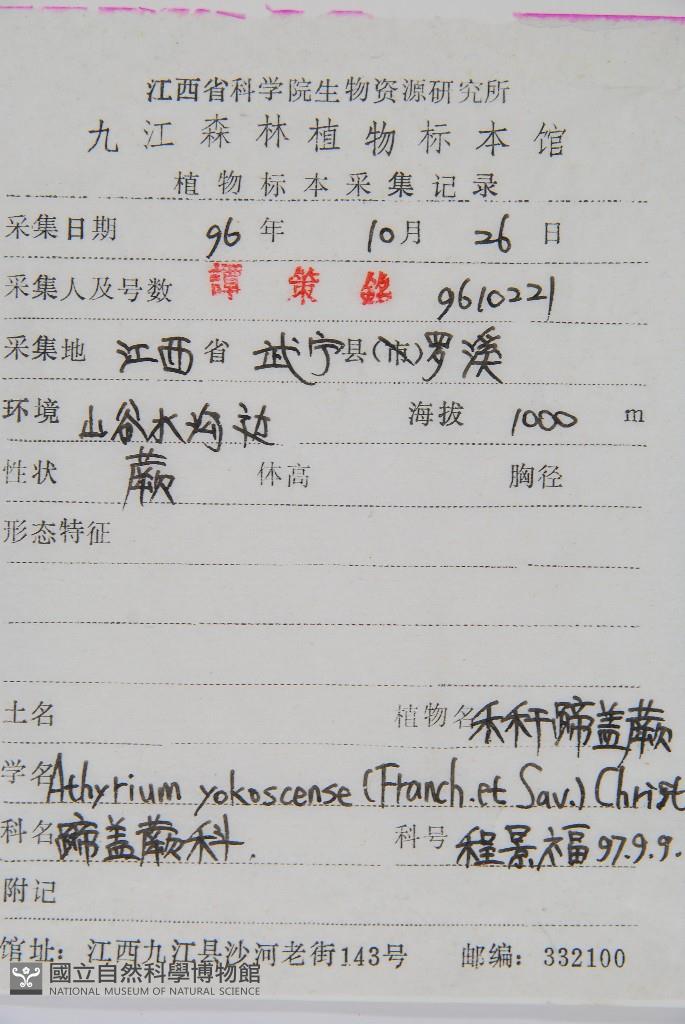 江西省科学院生物资源研究所
九江森林植物标本馆
植物标本采集记录
采集日期 96 年 10 月 26 日
采集人及号数 譚策銘 9610221
采集地 江西 省 武宁 县(市) 罗溪
环境 山谷水沟边 海拔 1000 m
性状 蕨 体高 胸径
形态特征
土名 植物名 禾秆蹄盖蕨
学名 Athyrium yokoscense (Franch. et Sav.) Christ
科名 蹄盖蕨科. 科号 程景福 97.9.9.
附记
馆址：江西九江县沙河老街143号 邮编：332100
國立自然科學博物館
NATIONAL MUSEUM OF NATURAL SCIENCE